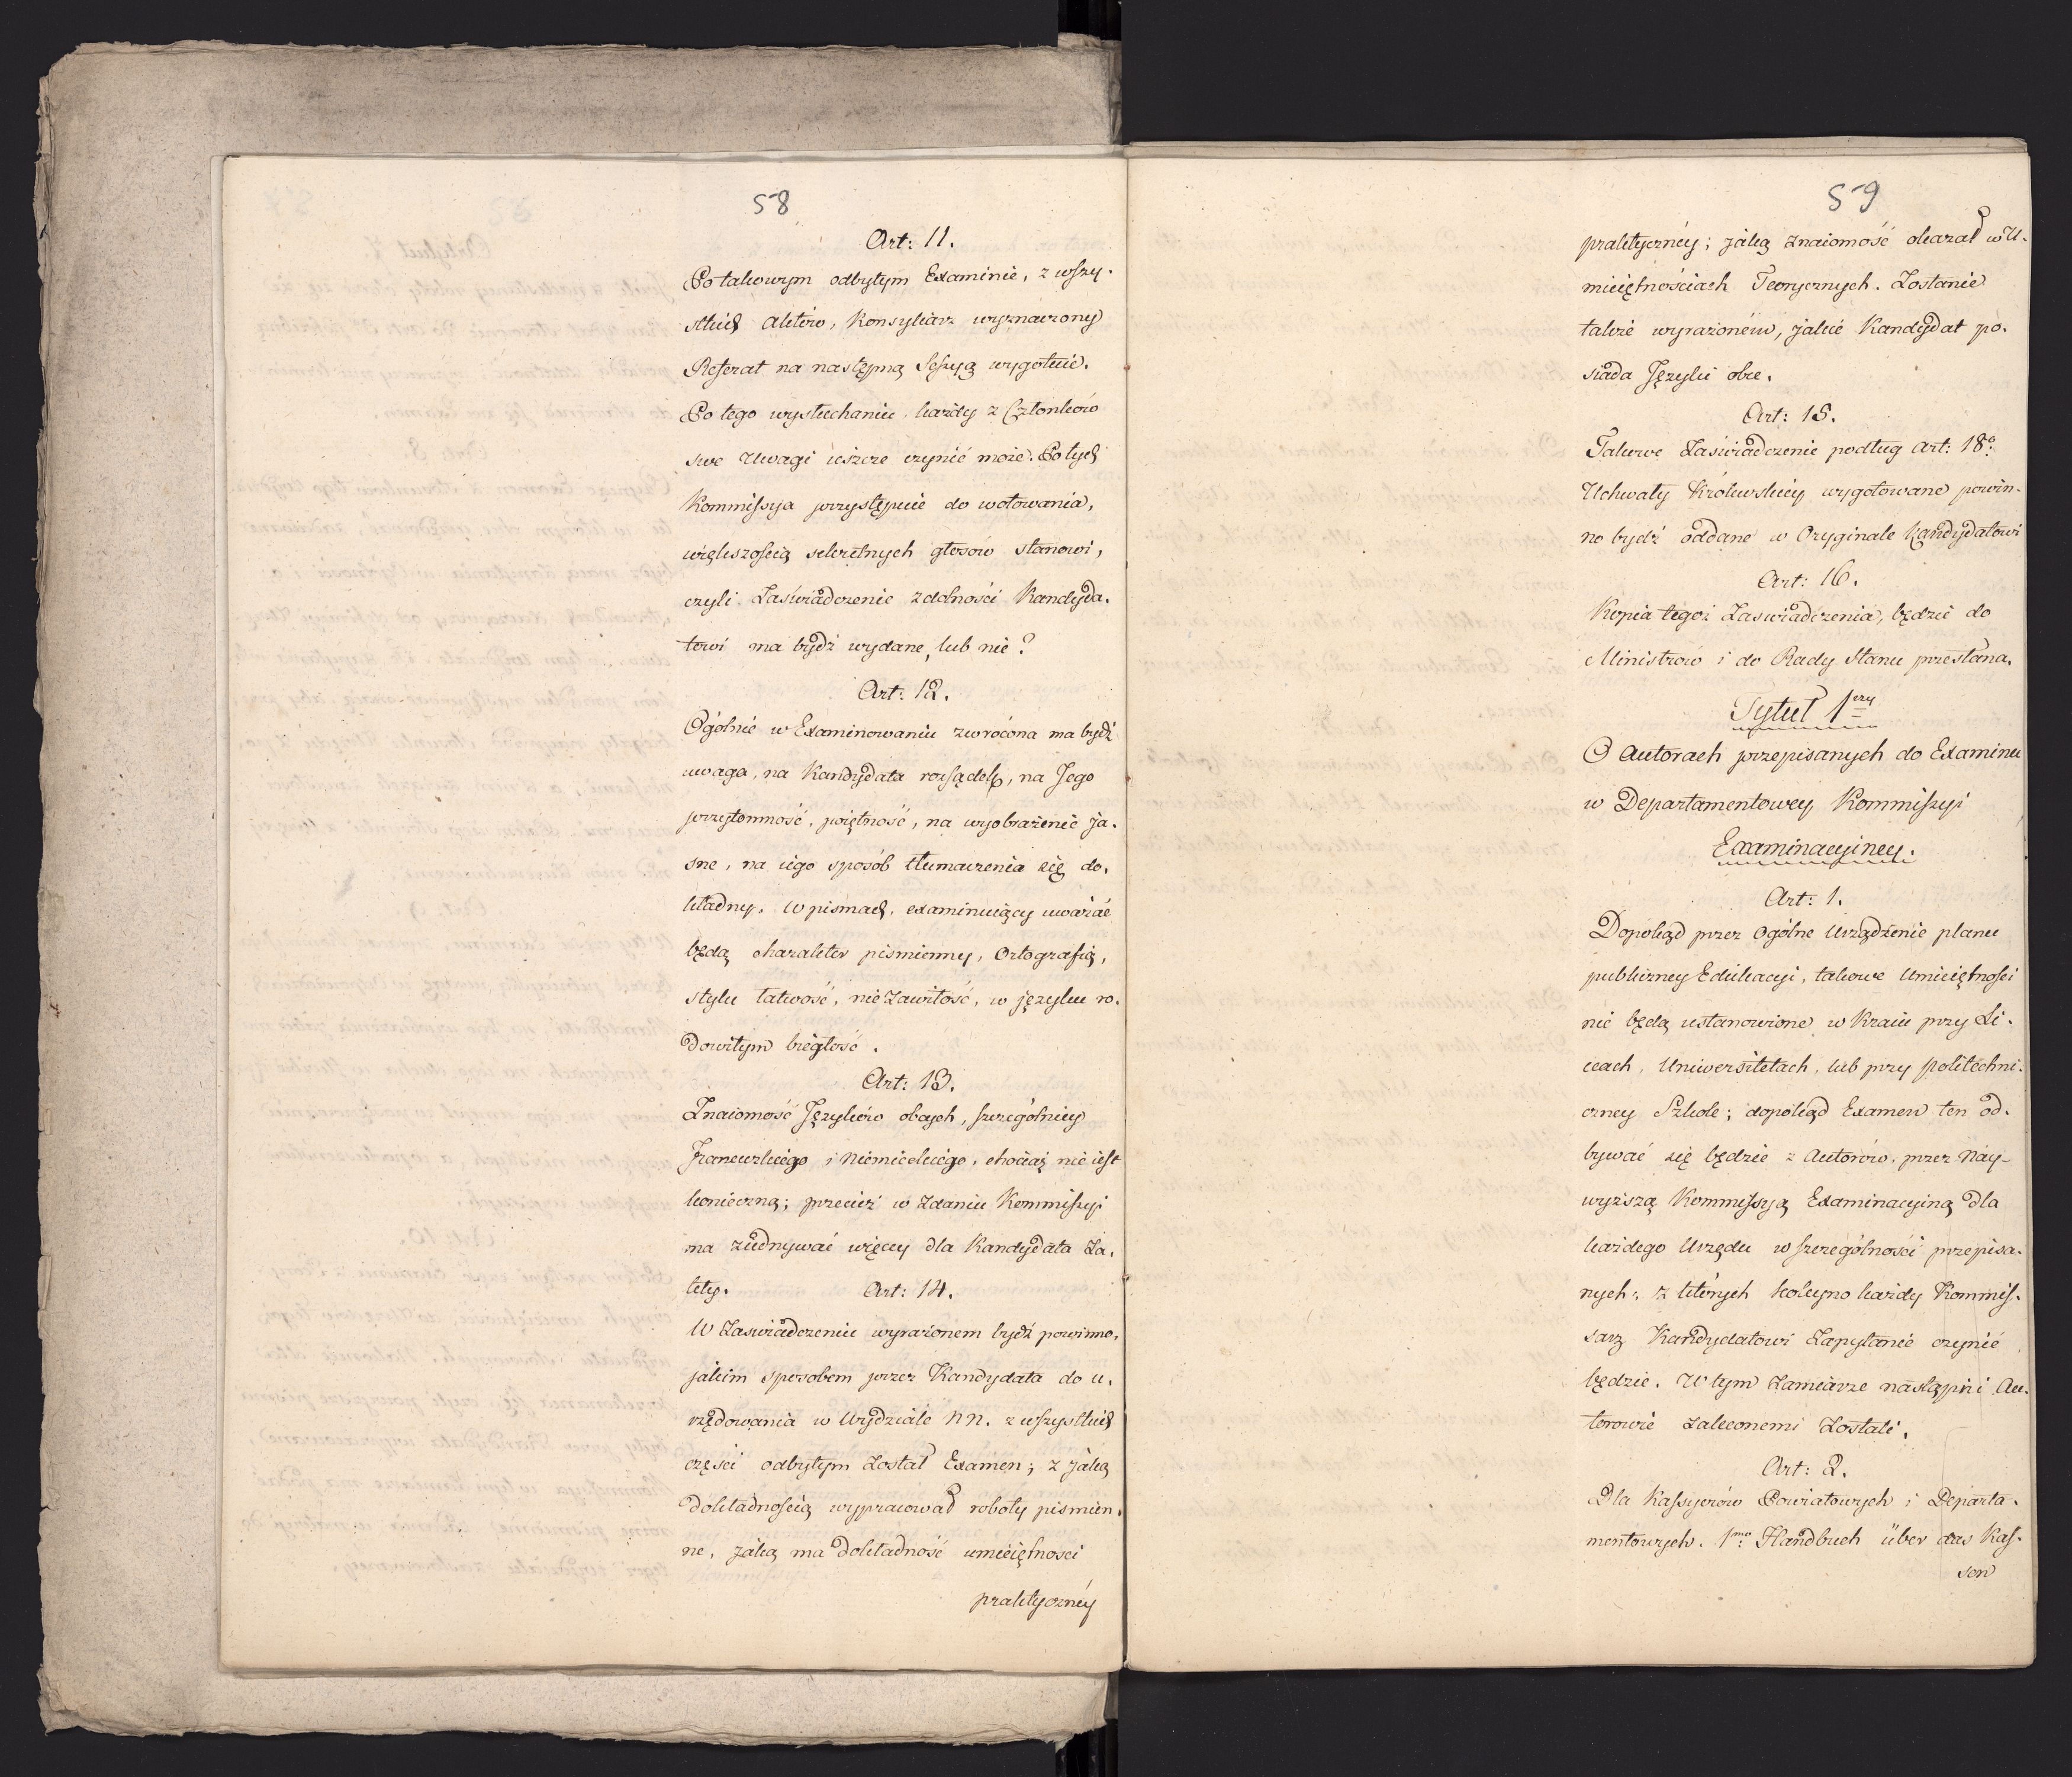 58
Art: 11.
Po takowym odbytym Examinie, z wszy-
stkich Aktów, Konsyliarz wyznaczony
Referat na następną Sessyą wygotuie.
Po tego wysłuchaniu każdy z Członków
swe Uwagi ieszcze czynić może. Po tych
Kommissya przystępuie do wotowania,
większością sekretnych głosów stanowi,
czyli Zaświadczenie zdolności Kandyda-
towi ma bydź wydane, lub nie?
Art: 12.
Ogólnie w Examinowaniu zwrócona ma bydź
uwaga, na Kandydata rozsądek, na Jego
przytomność, poiętność, na wyobrażenie ja-
sne, na iego sposób tłumaczenia się do-
kładny. W pismach, examinuiący uważać
będą charakter pismienny, Ortografią,
stylu łatwość, nie zawiłość, w języku ro-
dowitym biegłość.
Art: 13.
Znaiomość Języków obcych, szczególniey
Francuzkiego i Niemieckiego, chociaż nie iest
konieczną; przecież w zdaniu Kommissyi
ma ziednywać więcey dla Kandydata Za-
lety.
Art: 14.
W Zaswiadczeniu wyrażonem bydź powinno,
jakim sposobem przez Kandydata do u-
rzędowania w Wydziale NN. z wszystkich
części odbytym został Examen; z jaką
dokładnością wypracował roboty pismien-
ne, jaką ma dokładność umieiętnosci
praktyczney
59
praktyczney; jaką znaiomość okazał w U-
mieiętnościach Teorycznych. Zostanie
także wyrażonem, jakie Kandydat po-
siada Języki obce.
Art: 15.
Takowe Zaświadczenie podług Art: 18º
Uchwały Królewskiey wygotowane powin-
no bydź oddane w Oryginale Kandydatowi
Art: 16.
Kopia tegoż Zaswiadczenia, będzie do
Ministrów i do Rady Stanu przesłana.
Tytuł 1szy
O Autorach przepisanych do Examinu
w Departamentowey Kommissyi
Examinacyiney.
Art: 1.
Dopokąd przez ogólne Urządzenie planu
publiczney Edukacyi, takowe Umieiętności
nie będą ustanowione w Kraiu przy Li-
ceach, Uniwersitetach, lub przy politechni-
czney Szkole; dopokąd Examen ten od-
bywać się będzie z Autorów, przez Nay-
wyższą Kommissyą Examinacyiną dla
każdego Urzędu w szczególności przepisa-
nych; z których koleyno każdy Kommis-
sarz Kandydatowi Zapytanie czynić
będzie. W tym Zamiarze następni Au-
torowie zaleconemi zostali.
Art: 2.
Dla Kassyerów Powiatowych i Departa-
mentowych. 1mo Handbuch über das Kas-
sen